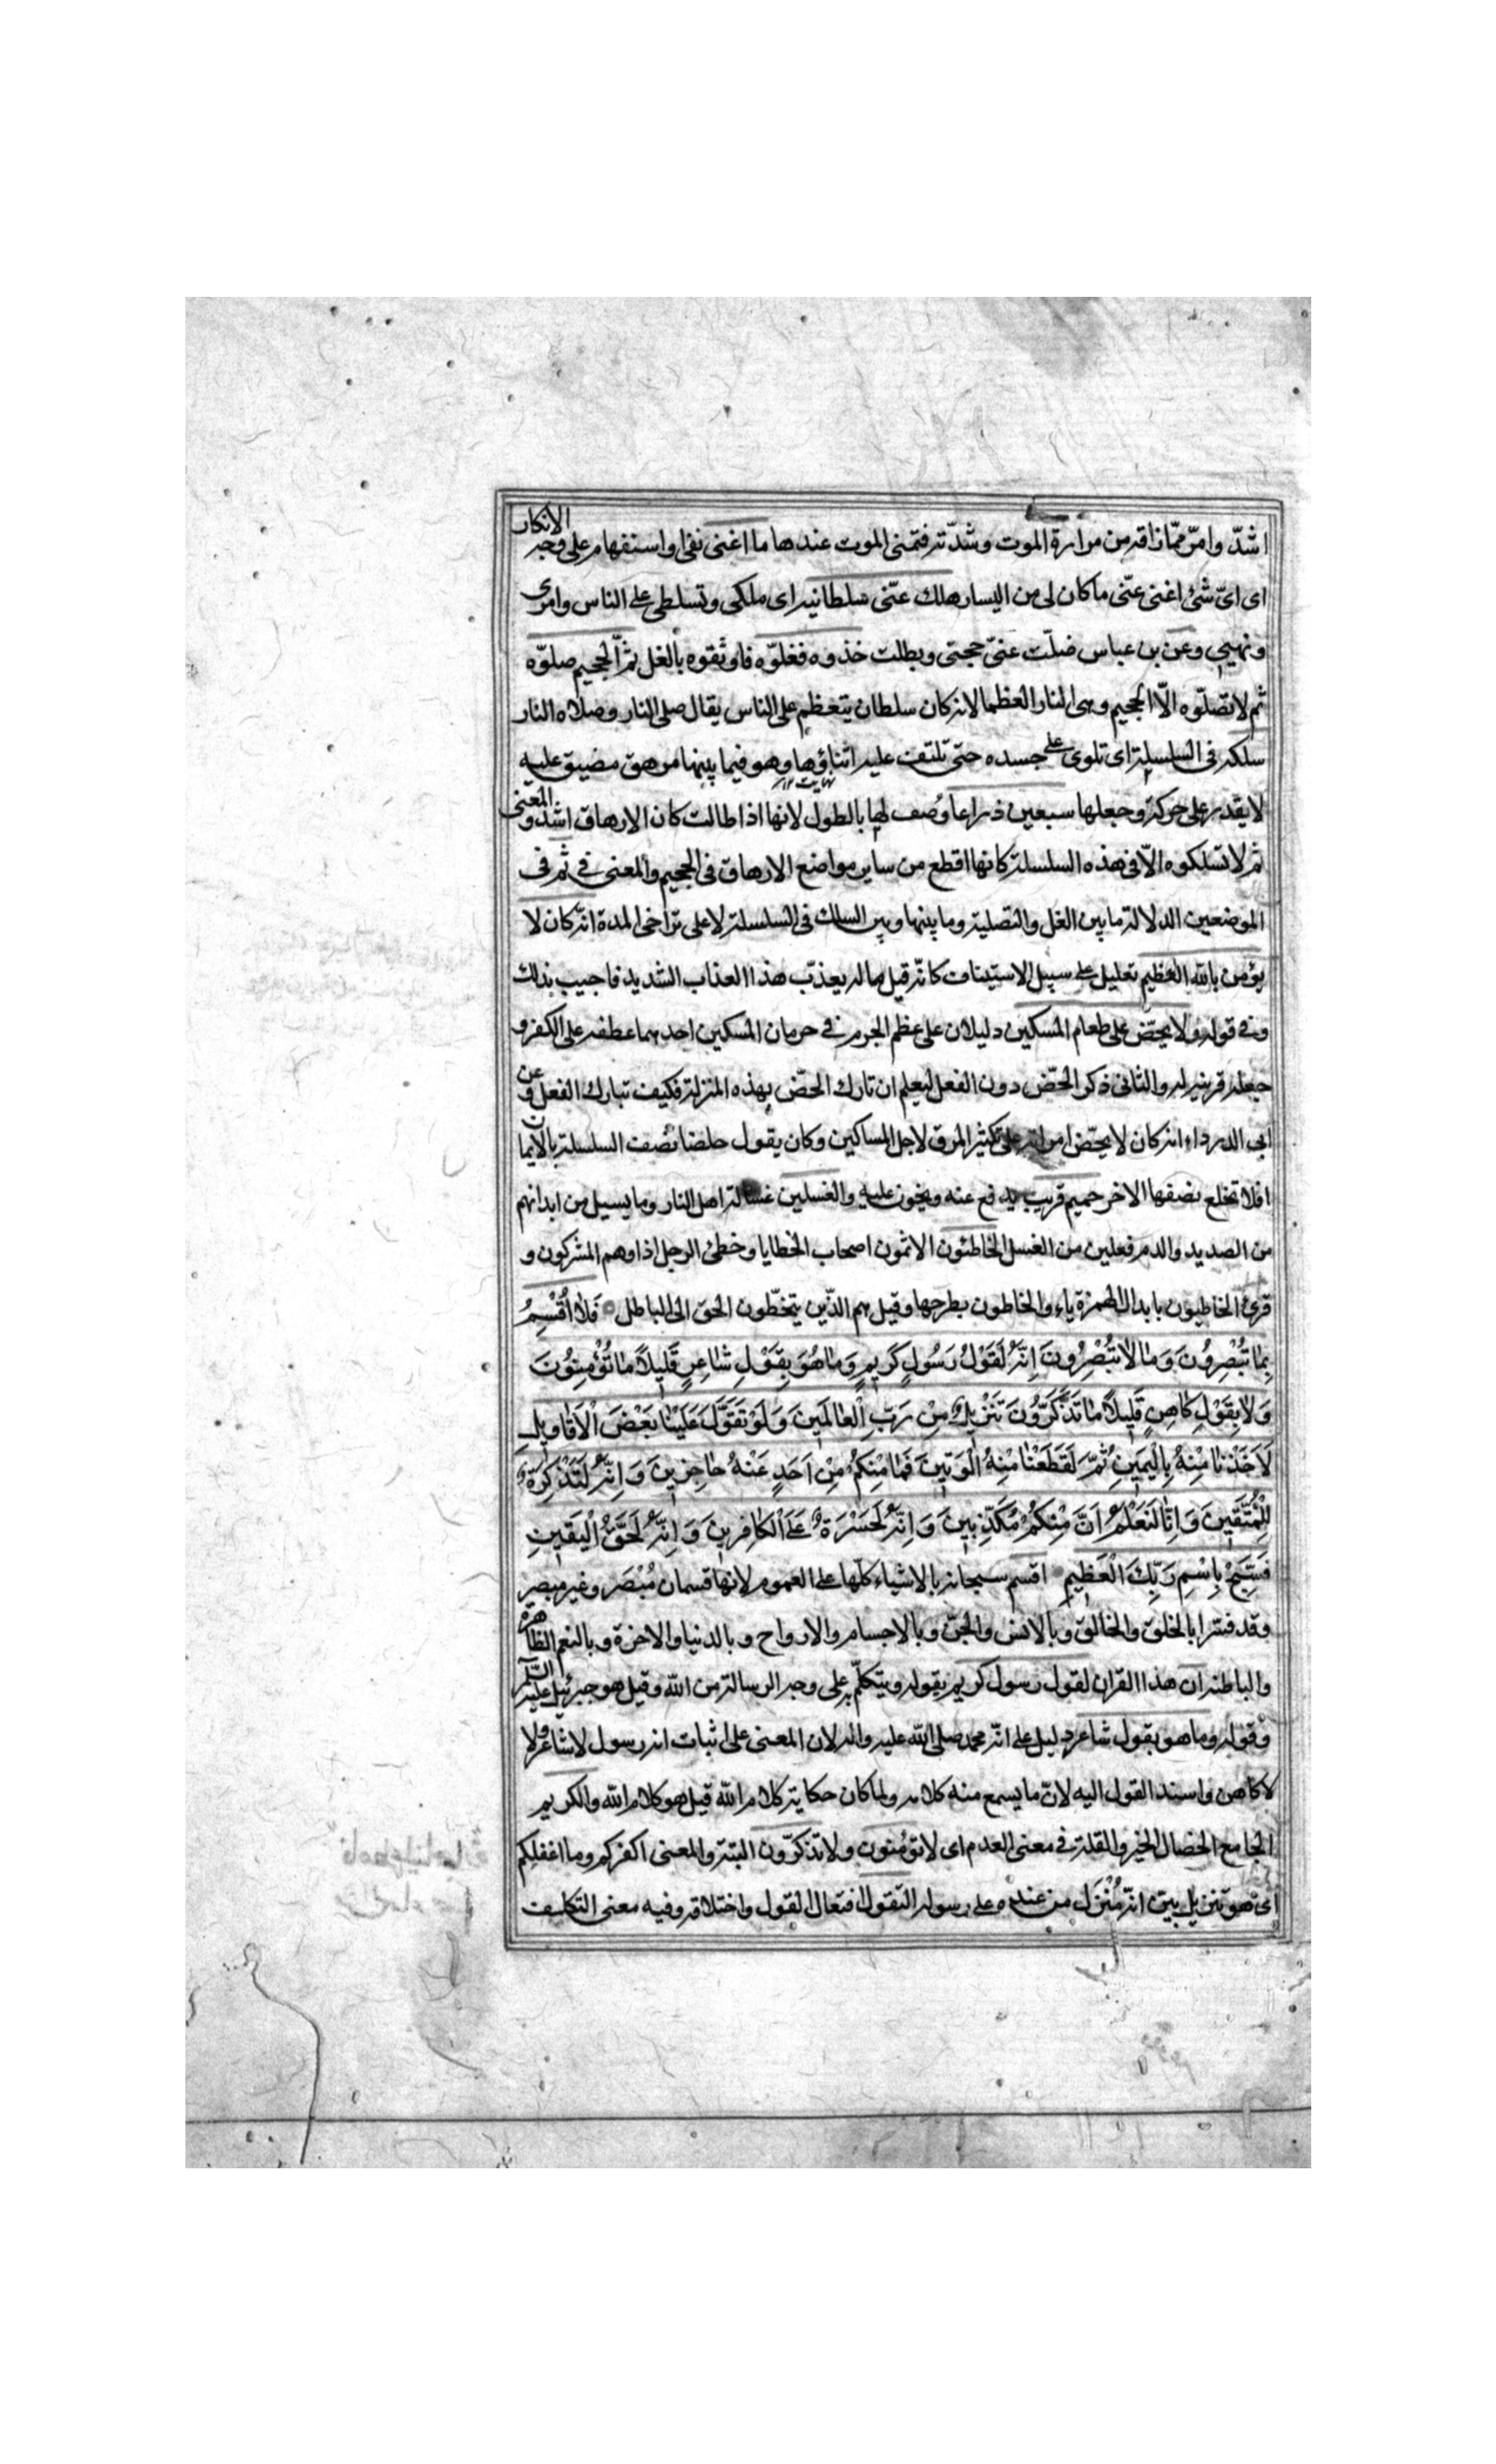 اشدّ وامرّ ممّا ذاقه من مرارة الموت وشدّته فتمنى الموت عندها ما اغنى نفى او استفهام على وجه الانكار
اى اىّ شئ اغنى عنّى ما كان لى من اليسار هلك عنّى سلطانيه اى ملكى وتسلطى على الناس وامرى
ونهيى وعن بن عباس ضلّت عنّى حجتى وبطلت خذوه فغلوّه فاوثقوه بالغل ثمّ الجحيم صلوّه
ثم لا تصلّوه الّا الجحيم وهى النار العظما لانه كان سلطان يتعظم على الناس يقال صلى النار وصلاه النار
سلكه فى السلسلة اى تلوى على جسده حتى تلتف عليه اثناؤها وهو فيما بينها مرهق مضيق عليه
لا يقدر على حركة وجعلها سبعين ذراعا وصف لها بالطول لانها اذا طالت كان الارهاق اشد والمعنى
ثم لا تسلكوه الّا فى هذه السلسلة كانها اقطع من ساير مواضع الارهاق فى الجحيم والمعنى فى ثم فى
الموضعين الدلالة ما بين الغل والتصلية وما بينها وبين السلك فى السلسلة لا على تراخى المدة انّه كان لا
يؤمن بالله العظيم تعليل على سبيل الاستيناف كانّه قيل ما له يعذب هذا العذاب الشديد فاجيب بذلك
وفى قوله ولا يحضّ على طعام المسكين دليلان على عظم الجرم فى حرمان المسكين احدهما عطفه على الكفر و
جعله قرينه له والثانى ذكر الحضّ دون الفعل ليعلم ان تارك الحضّ بهذه المنزلة فكيف تبارك الفعل وعن
ابى الدرداء انه كان لا يحضّ امراته على تكثير المرق لاجل المساكين وكان يقول خلصنا نصف السلسلة بالايمان
افلا تخلع نصفها الاخر حميم قريب يدفع عنه ويحزن عليه والغسلين غسالة اهل النار وما يسيل من ابدانهم
من الصديد والدم فعلين من الغسل الخاطئون الاثمون اصحاب الخطايا وخطئ الرجل اذا وهم المشركون و
قرئ الخاطيون بابدال الهمزة ياء والخاطون بطرحها وقيل هم الذّين يتخطّون الحق الى الباطل فَلا اُقْسِمُ
بِما تُبْصِرُونَ وَما لا تُبْصِرُونَ اِنَّهُ لَقَوْلُ رَسُولٍ كَرِيمٍ وَما هُوَ بِقَوْلِ شاعِرٍ قَلِيلاً ما تُؤْمِنُونَ
وَلا بِقَوْلِ كاهِنٍ قَلِيلاً ما تَذَكَّرُونَ تَنْزِيلٌ مِنْ رَبِّ الْعالَمِينَ وَلَوْ تَقَوَّلَ عَلَيْنا بَعْضَ الْاَقاوِيلِ
لَاَخَذْنا مِنْهُ بِالْيَمِينِ ثُمَّ لَقَطَعْنا مِنْهُ الْوَتِينَ فَما مِنْكُمْ مِنْ اَحَدٍ عَنْهُ حاجِزِينَ وَاِنَّهُ لَتَذْكِرَةٌ
لِلْمُتَّقِينَ وَاِنّا لَنَعْلَمُ اَنَّ مِنْكُمْ مُكَذِّبِينَ وَاِنَّهُ لَحَسْرَةٌ عَلَى الْكافِرِينَ وَاِنَّهُ لَحَقُّ الْيَقِينِ
فَسَبِّحْ بِاسْمِ رَبِّكَ الْعَظِيمِ اقسم سبحانه بالاشياء كلّها على العموم لانها قسمان مُبْصَر وغير مبصر
وقد فسّرا بالخلق والخالق وبالانس والجنّ وبالاجسام والارواح وبالدنيا والاخرة وبالنعم الظاهرة
والباطنه ان هذا القران لقول رسول كريم يقوله ويتكلّم به على وجه الرسالة من الله وقيل هو جبرئيل عليه السّلم
وقوله وما هو بقول شاعر دليل على انّه محمد صلى الله عليه واله لان المعنى على اثبات انه رسول لا شاعر ولا
لا كاهن واسند القول اليه لانّ ما يسمع منه كلامه ولما كان حكاية كلام الله قيل هو كلام الله والكريم
الجامع الخصال الخير والقلة فى معنى العدم اى لا تؤمنون ولا تذكرّون البتة والمعنى اكفركم وما اغفلكم
اى هو تنزيل بين انّه مُنْزَل من عنده على رسوله التقول افتعال القول واختلاقه وفيه معنى التكليف